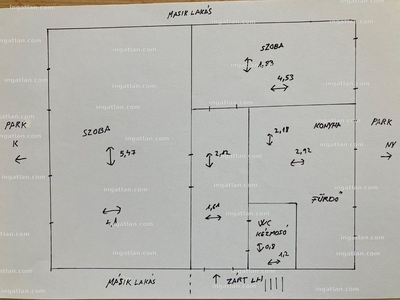 MÁSIK LAKÁS
SZOBA
1,93
4,53
PARK
K
SZOBA
5,47
4,1
2,12
1,61
KONYHA
2,18
2,92
FÜRDŐ
PARK
NY
WC
KÉZMOSÓ
0,8
1,2
MÁSIK LAKÁS
ZÁRT LH
ingatlan.com